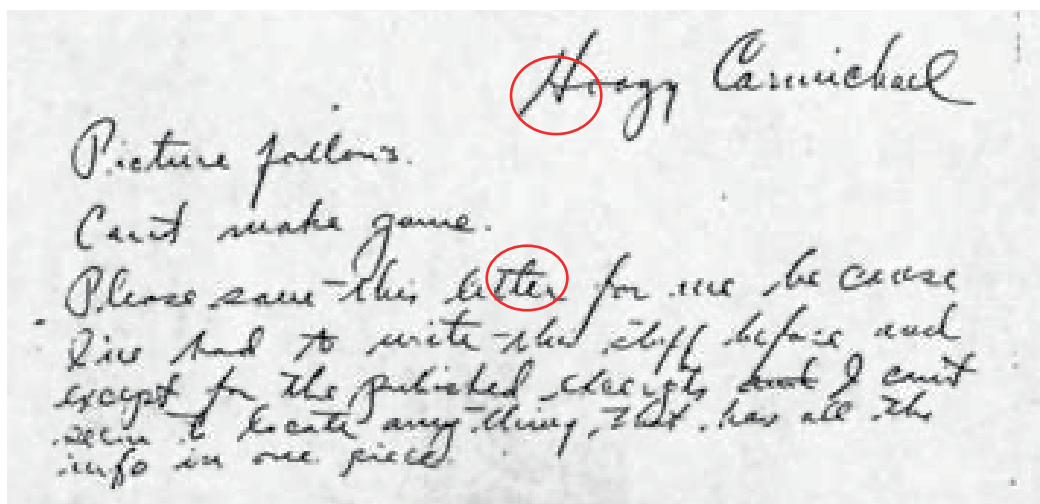 Hoagy Carmichael
Picture follows.
Can't make game.
Please save this letter for me because
I've had to write this stuff before and
except for the published excerpts and I can't
seem to locate anything, that has all the
info in one piece.